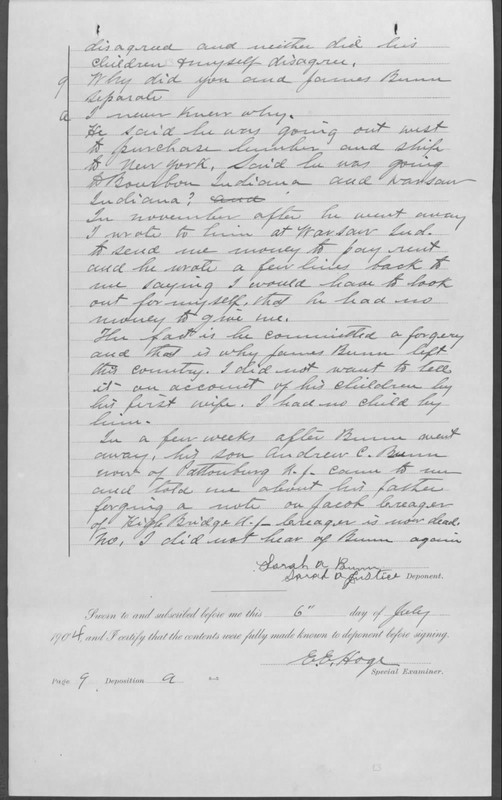 disagreed and neither did his
children & myself disagree.
Q Why did you and James Bunn
separate
A I never knew why.
He said he was going out west
to purchase lumber and ship
to New York. Said he was going
to Bourbon Indiana and Warsaw
Indiana? and
In November after he went away
I wrote to him at Warsaw Ind.
to send me money to pay rent
and he wrote a few lines back to
me saying I would have to look
out for myself. that he had no
money to give me.
The fact is he committed a forgery
and that is why James Bunn left
this country. I did not want to tell
it on account of his children by
his first wife. I had no child by
him.
In a few weeks after Bunn went
away, his son Andrew C. Bunn
now of Pattenburg N.J. came to me
and told me about his father
forging a note on Jacob Creager
of High Bridge N.J. Creager is now dead.
No, I did not hear of Bunn again
Sarah A Bunn
Sarah A Justice Deponent.
Sworn to and subscribed before me this 6" day of July
1904, and I certify that the contents were fully made known to deponent before signing.
E.E. Hoge
Special Examiner.
Page 9 Deposition A